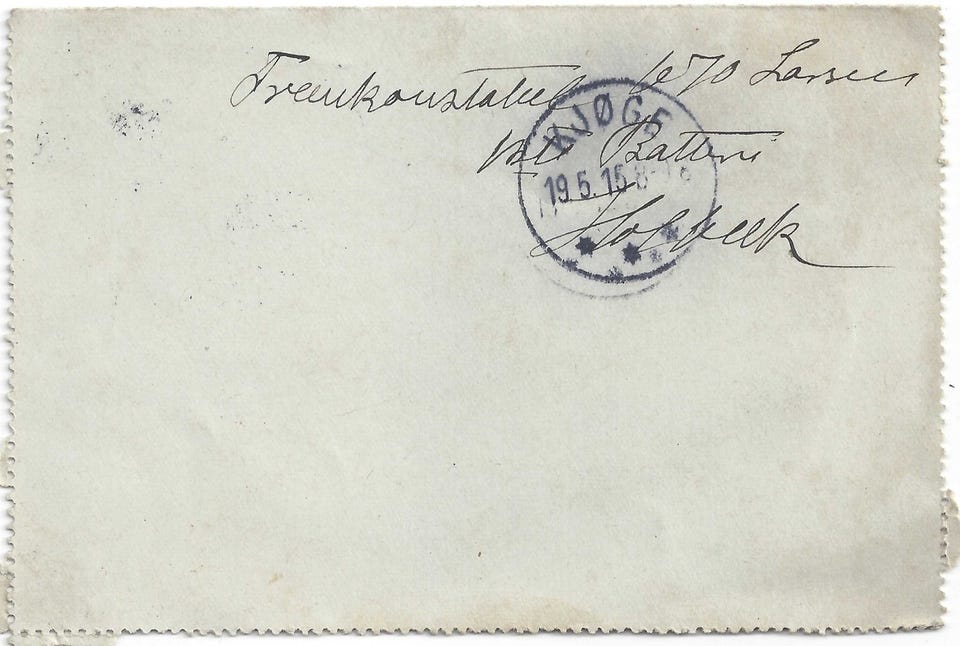 Trænkonstabel 70 Larsen
Batteri
Holbæk
KJØGE
19.5.15